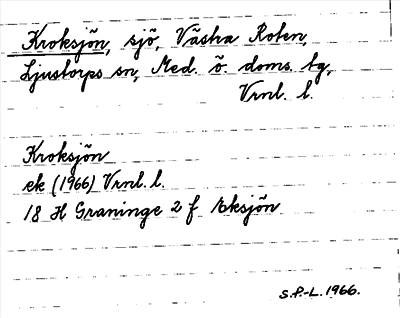 Kroksjön, sjö, Västra Roten,
Ljustorps sn, Med. ö. doms. tg,
Vrnl. l.
Kroksjön
ek (1966) Vrnl. l.
18 H Graninge 2 f Eksjön
S.P.-L. 1966.